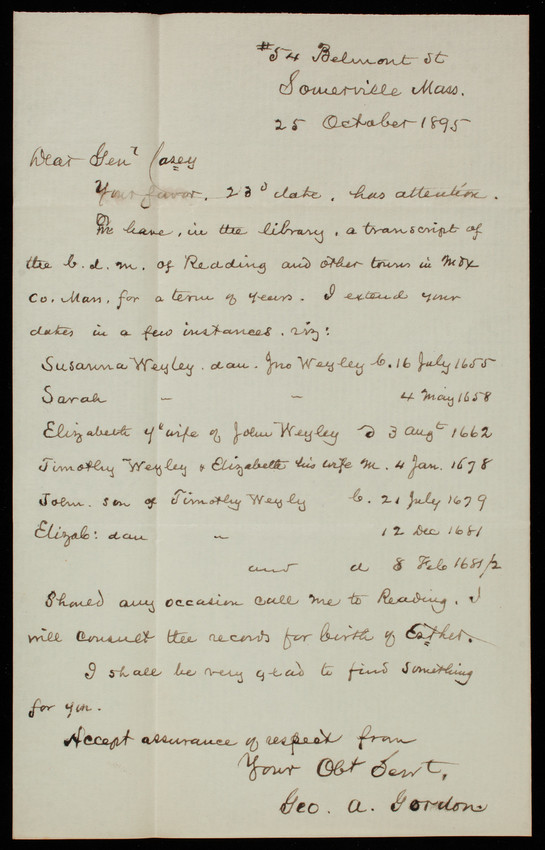 #54 Belmont St
Somerville Mass.
25 October 1895
Dear Genl Casey
Your favor, 23d date, has attention.
We have, in the library, a transcript of
the b. d. m. of Redding and other towns in Mdx
Co. Mass. for a term of years. I extend your
dates in a few instances. viz:
Susanna Weyley. dau. Jno Weyley b. 16 July 1655
Sarah - - 4 May 1658
Elizabeth ye wife of John Weyley d 3 Augt 1662
Timothy Weyley & Elizabeth his wife m. 4 Jan. 1678
John. son of Timothy Weyly b. 21 July 1679
Elizab: dau " 12 Dec 1681
and d 8 Feb 1681/2
Should any occasion call me to Reading, I
will consult the records for birth of Esther.
I shall be very glad to find something
for you.
Accept assurance of respect from
Your Obt Servt,
Geo. A. Gordon